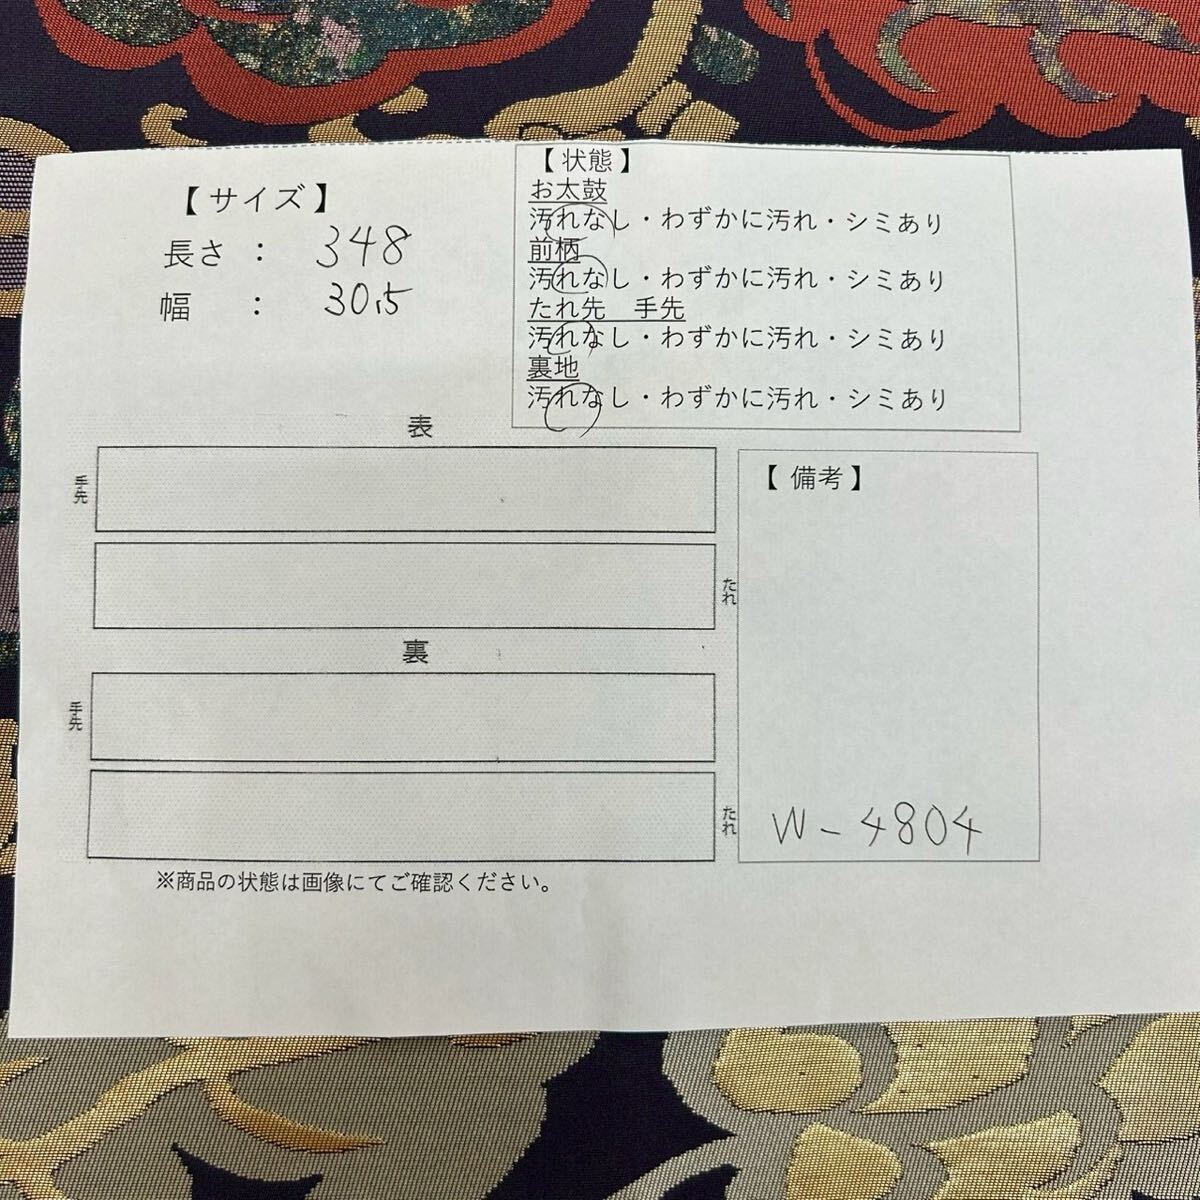 【 サイズ 】
長さ : 348
幅 : 30.5
【 状態 】
お太鼓
汚れなし・わずかに汚れ・シミあり
前柄
汚れなし・わずかに汚れ・シミあり
たれ先 手先
汚れなし・わずかに汚れ・シミあり
裏地
汚れなし・わずかに汚れ・シミあり
表
手先
たれ
裏
手先
たれ
※商品の状態は画像にてご確認ください。
【 備考 】
W-4804